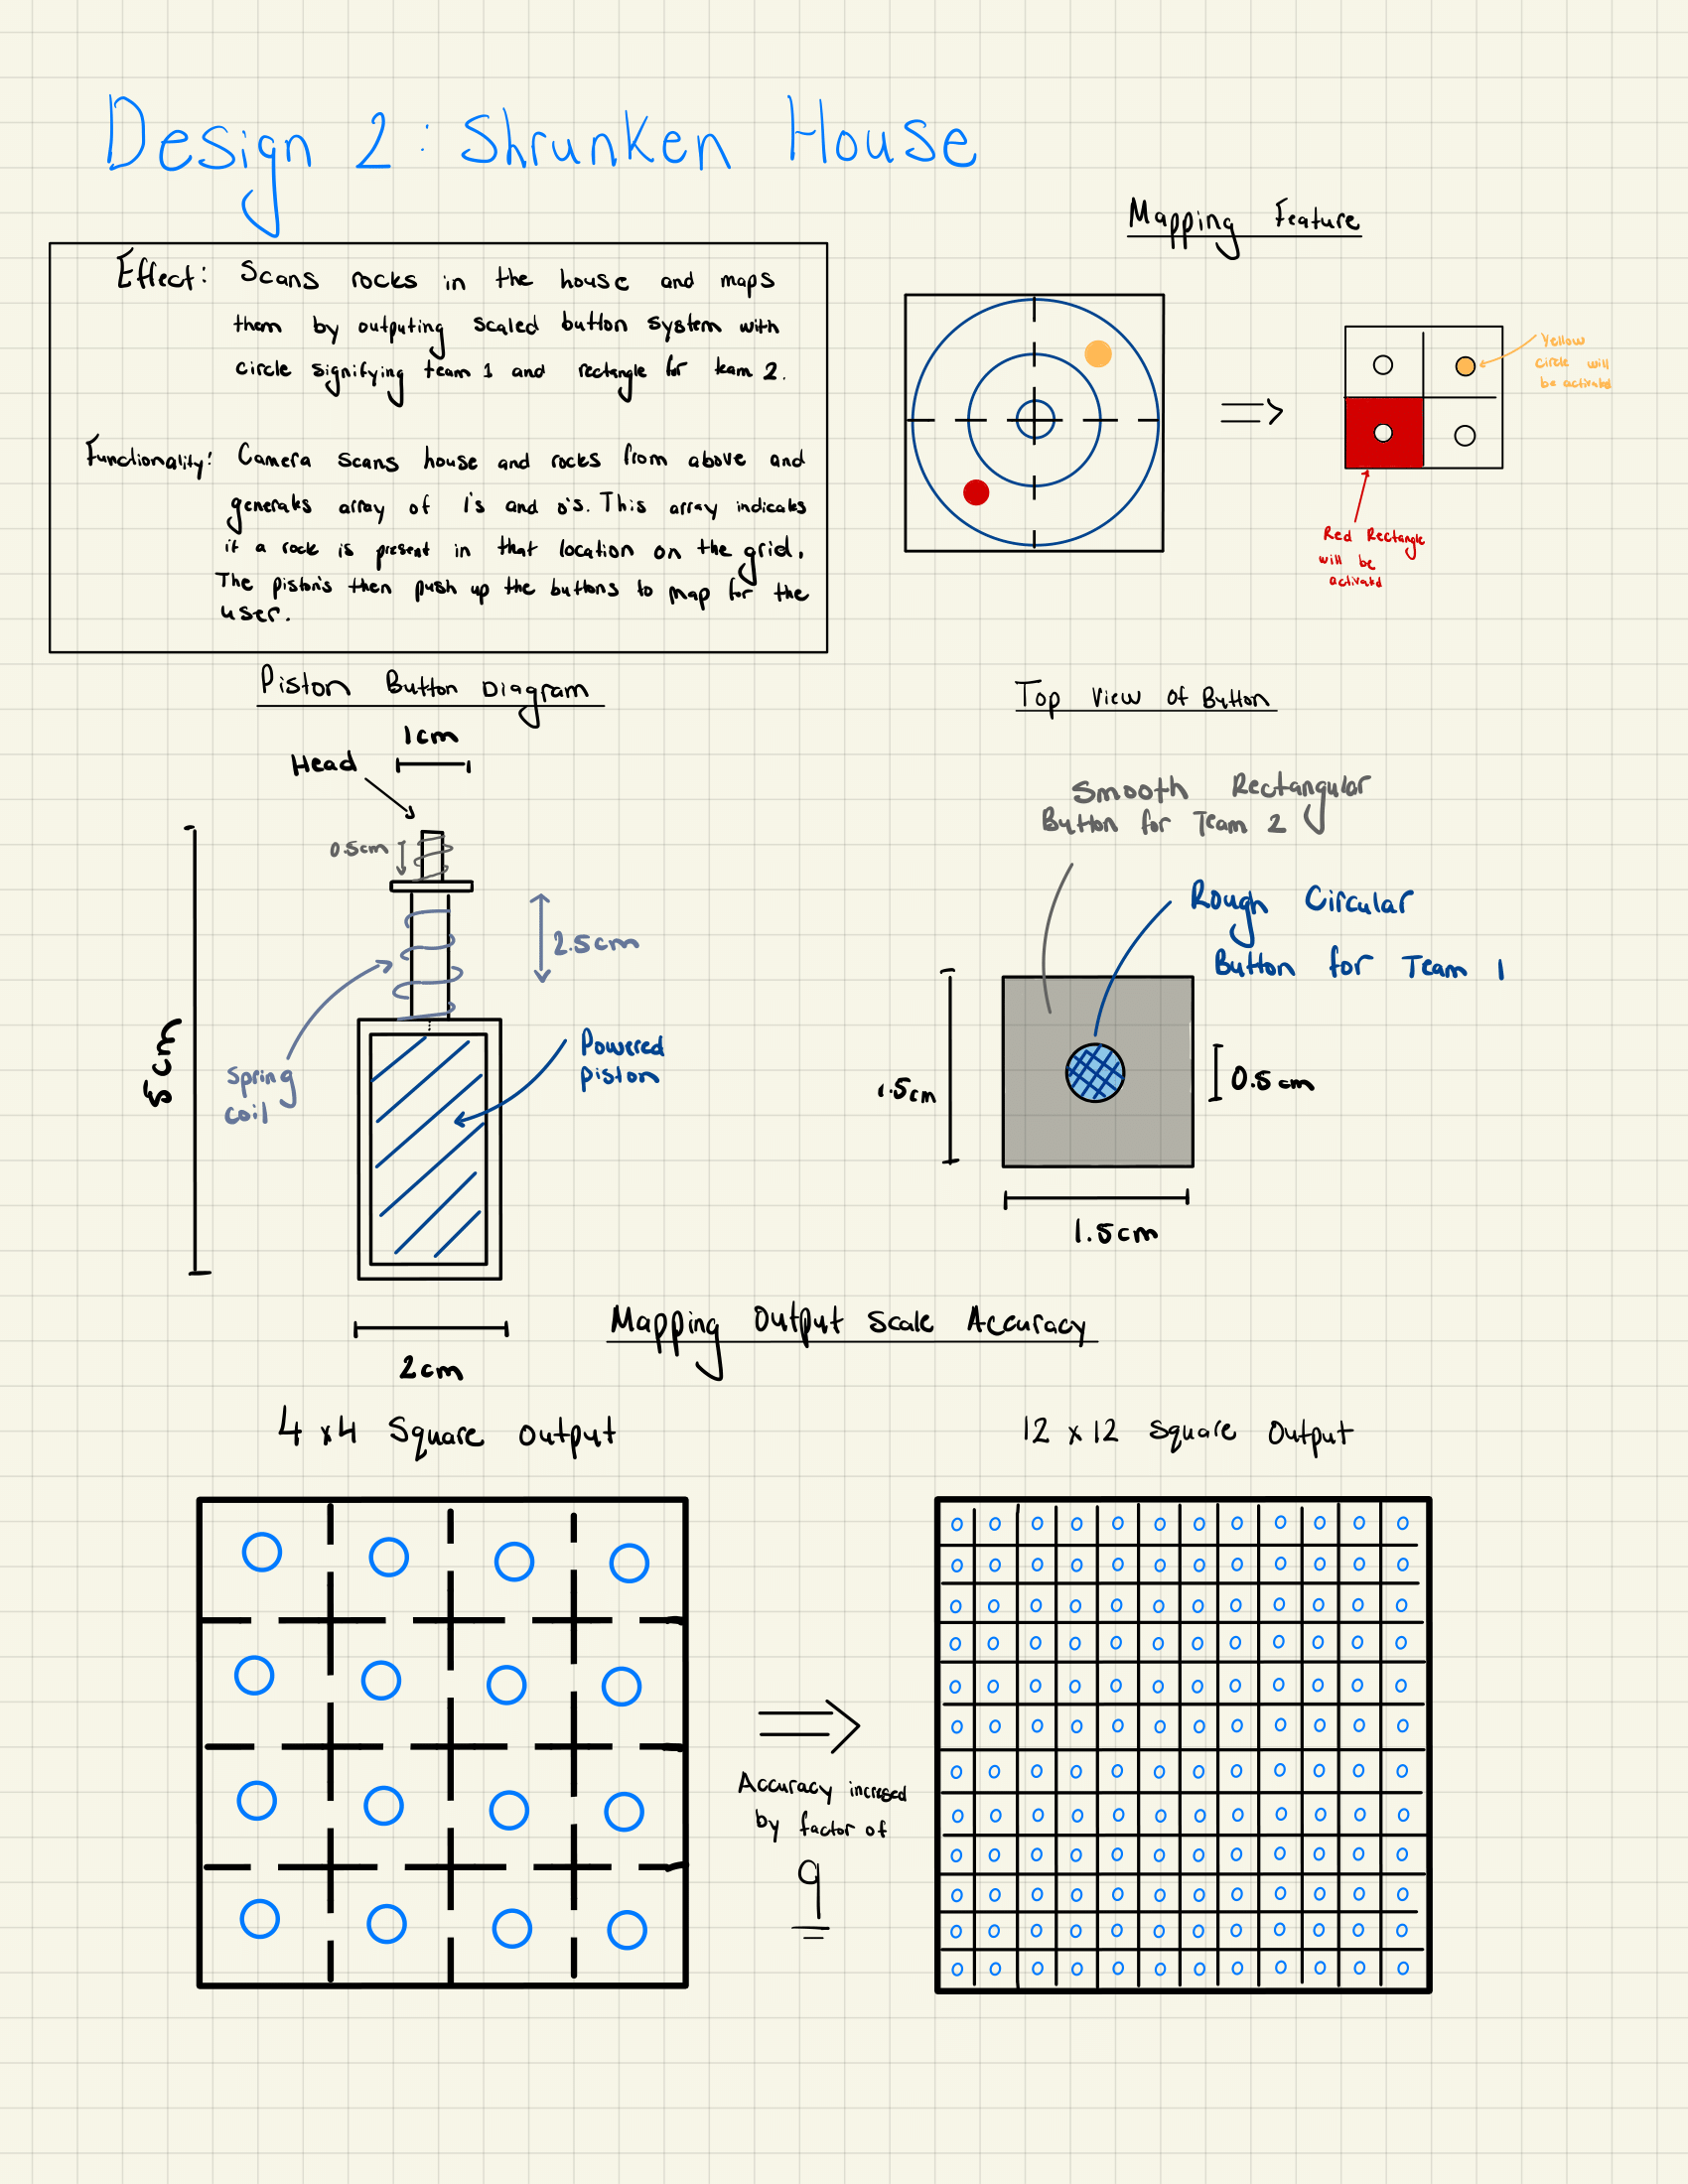 Design 2: Shrunken House
Effect: Scans rocks in the house and maps
them by outputing scaled button system with
circle signifying team 1 and rectangle for team 2.
Functionality: Camera scans house and rocks from above and
generates array of 1's and 0's. This array indicates
if a rock is present in that location on the grid.
The piston's then push up the buttons to map for the
user.
Mapping Feature
Yellow
circle will
be activated
Red Rectangle
will be
activated
Piston Button Diagram
1cm
Head
0.5cm
2.5cm
5cm
Spring
coil
Powered
piston
2cm
Top View Of Button
Smooth Rectangular
Button for Team 2
Rough Circular
Button for Team 1
1.5cm
0.5cm
1.5cm
Mapping Output Scale Accuracy
4 x 4 Square Output
12 x 12 Square Output
Accuracy incresed
by factor of
9